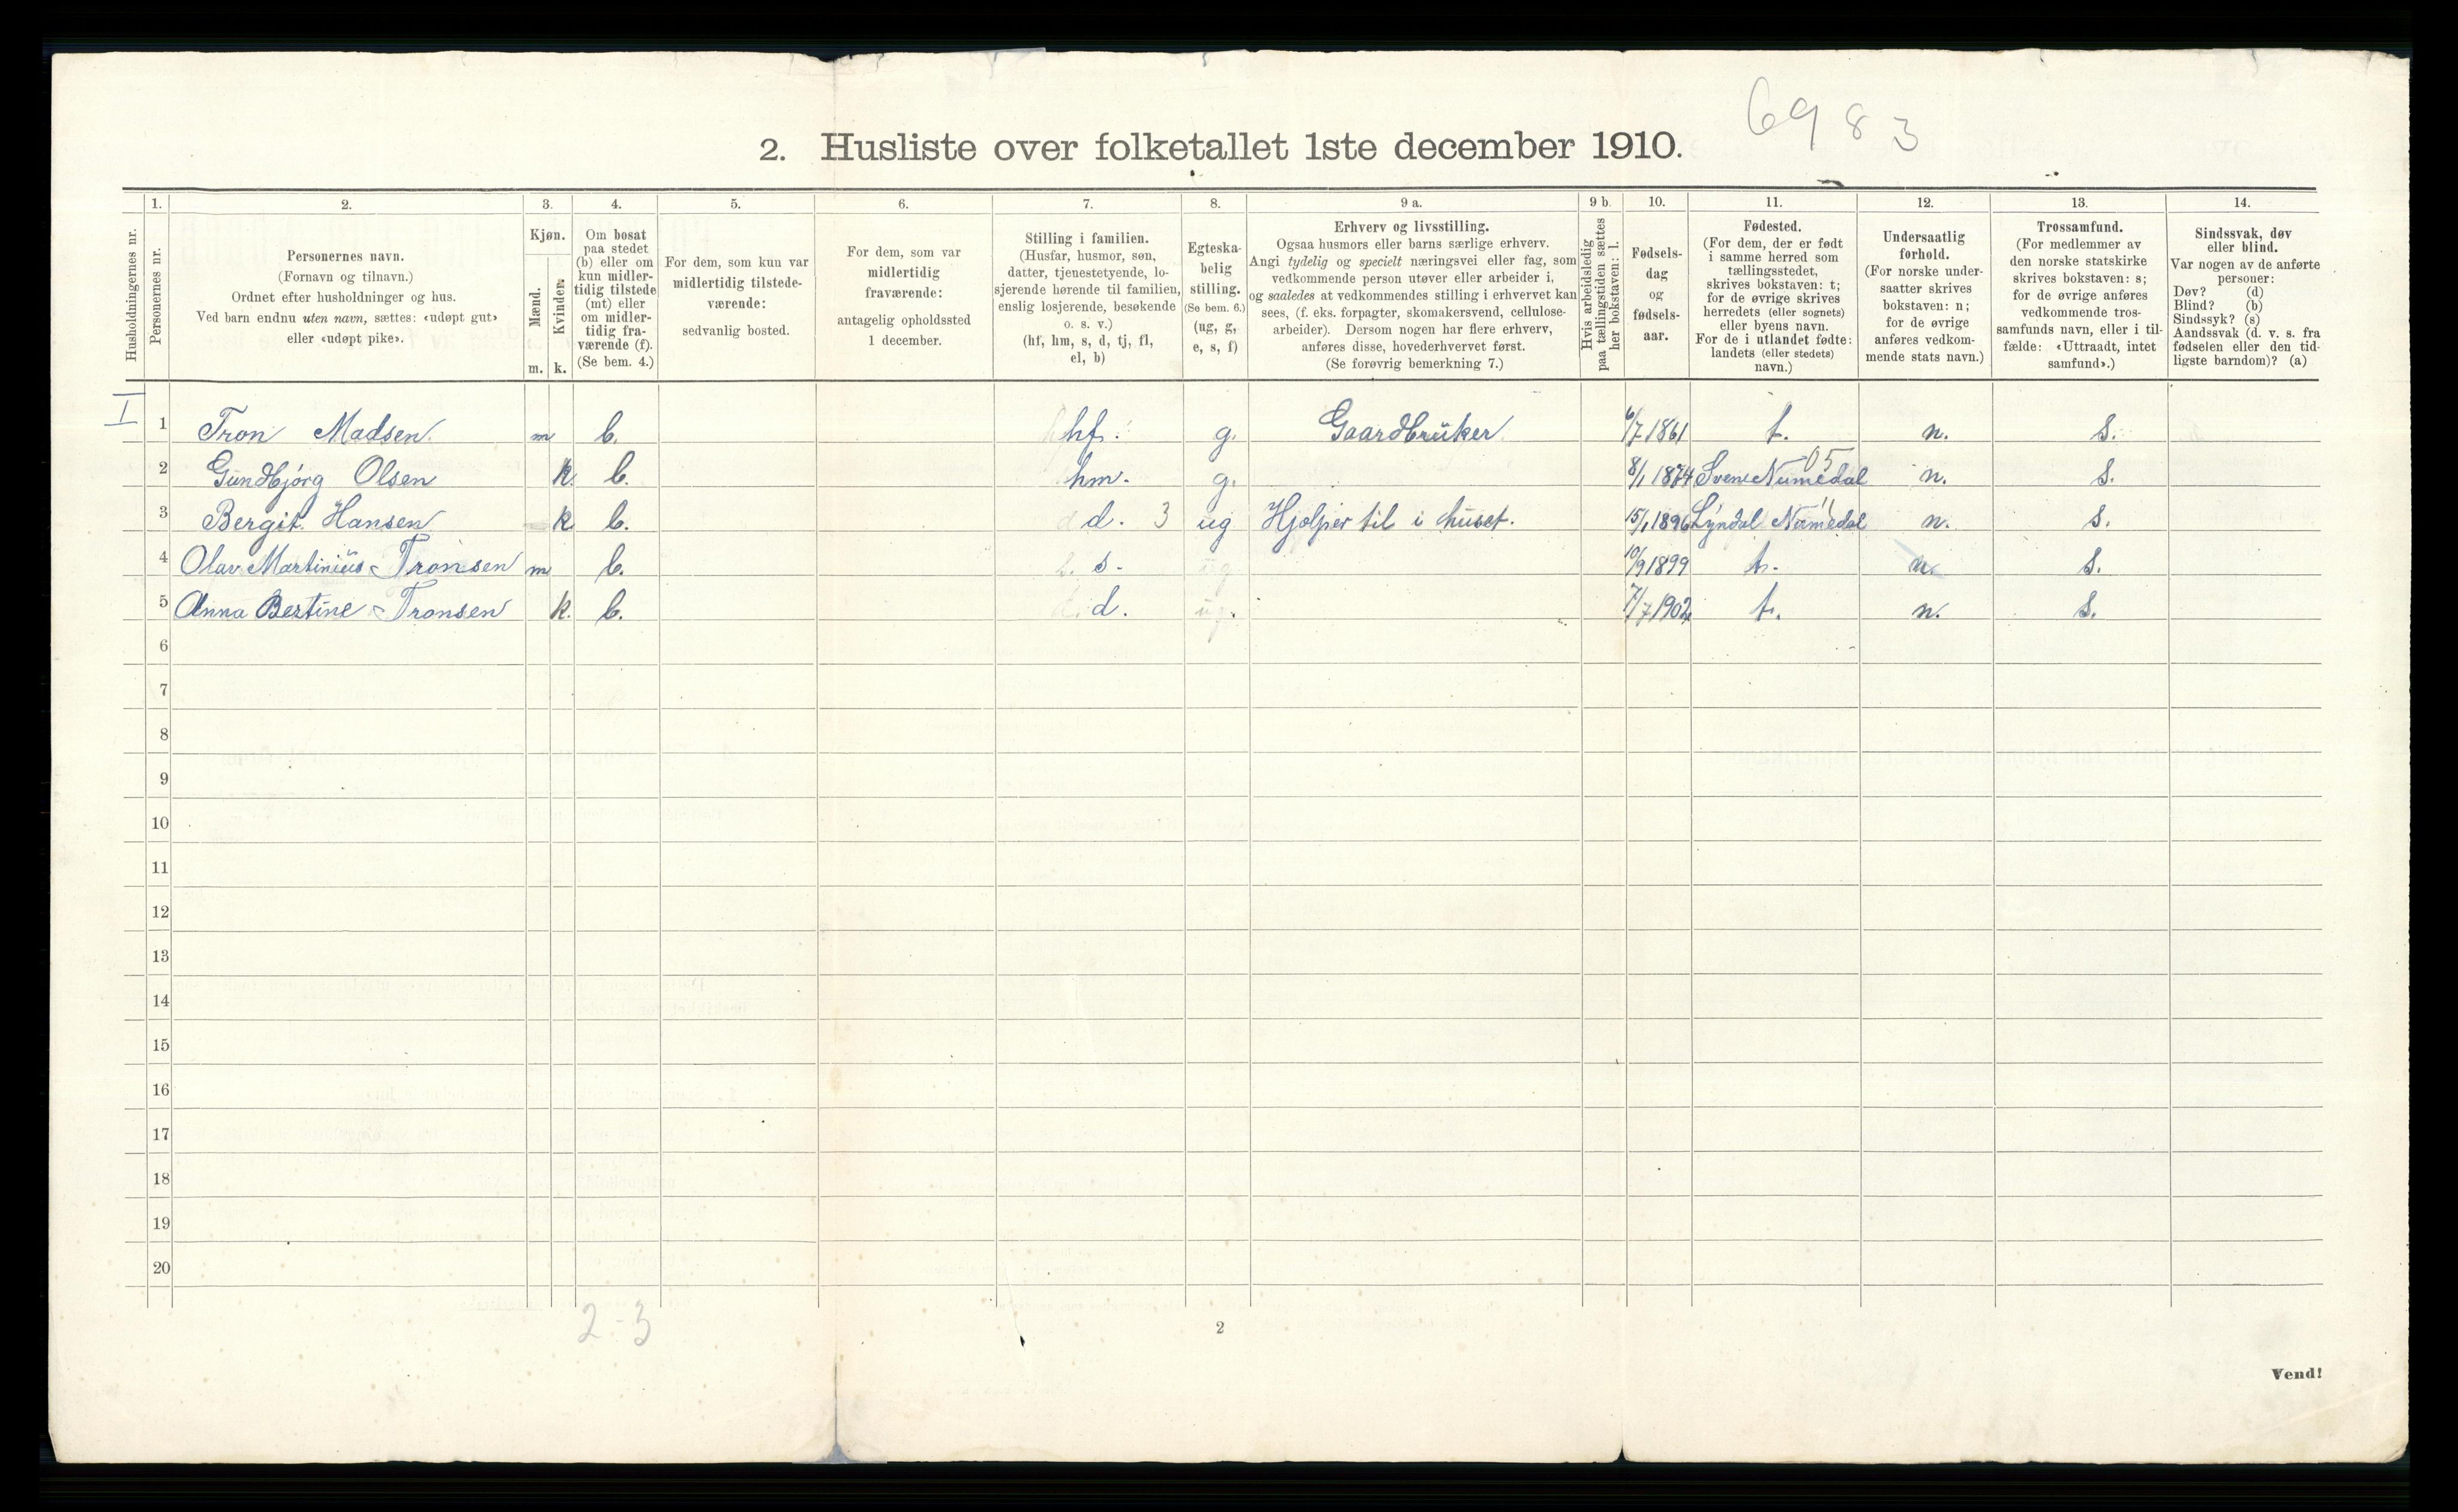 6983
2. Husliste over folketallet 1ste december 1910.
Husholdningernes nr.
1.
Personernes nr.
2.
Personernes navn.
(Fornavn og tilnavn.)
Ordnet efter husholdninger og hus.
Ved barn endnu uten navn, sættes: «udøpt gut»
eller «udøpt pike».
3.
Kjøn.
Mænd.
Kvinder.
m. k.
4.
Om bosat
paa stedet
(b) eller om
kun midler-
tidig tilstede
(mt) eller
om midler-
tidig fra-
værende (f).
(Se bem. 4.)
5.
For dem, som kun var
midlertidig tilstede-
værende:
sedvanlig bosted.
6.
For dem, som var
midlertidig
fraværende:
antagelig opholdssted
1 december.
7.
Stilling i familien.
(Husfar, husmor, søn,
datter, tjenestetyende, lo-
sjerende hørende til familien,
enslig losjerende, besøkende
o. s. v.)
(hf, hm, s, d, tj, fl,
el, b)
8.
Egteska-
belig
stilling.
(Se bem. 6.)
(ug, g,
e, s, f)
9 a.
Erhverv og livsstilling.
Ogsaa husmors eller barns særlige erhverv.
Angi tydelig og specielt næringsvei eller fag, som
vedkommende person utøver eller arbeider i,
og saaledes at vedkommendes stilling i erhvervet kan
sees, (f. eks. forpagter, skomakersvend, cellulose-
arbeider). Dersom nogen har flere erhverv,
anføres disse, hovederhvervet først.
(Se forøvrig bemerkning 7.)
9 b.
Hvis arbeidsledig
paa tællingstiden sættes
her bokstaven: l.
10.
Fødsels-
dag
og
fødsels-
aar.
11.
Fødested.
(For dem, der er født
i samme herred som
tællingsstedet,
skrives bokstaven: t;
for de øvrige skrives
herredets (eller sognets)
eller byens navn.
For de i utlandet fødte:
landets (eller stedets)
navn.)
12.
Undersaatlig
forhold.
(For norske under-
saatter skrives
bokstaven: n;
for de øvrige
anføres vedkom-
mende stats navn.)
13.
Trossamfund.
(For medlemmer av
den norske statskirke
skrives bokstaven: s;
for de øvrige anføres
vedkommende tros-
samfunds navn, eller i til-
fælde: «Uttraadt, intet
samfund».)
14.
Sindssvak, døv
eller blind.
Var nogen av de anførte
personer:
Døv? (d)
Blind? (b)
Sindssyk? (s)
Aandssvak (d. v. s. fra
fødselen eller den tid-
ligste barndom)? (a)
I 1 Tron Madsen m b. hf. g. Gaardbruker 6/7 1861 t. n. s.
2 Gundbjørg Olsen k. b. hm. g. 8/1 1874 Svene Numedal 05 n. s.
3 Bergit Hansen k b. d. 3 ug Hjelper til i huset. 15/1 1896 Lyndal Numedal n. s.
4 Olav Martinius Tronsen m b. s. ug 10/9 1899 t. n. s.
5 Anna Bertine Tronsen k. b. d. ug. 7/7 1902 t. n. s.
6
7
8
9
10
11
12
13
14
15
16
17
18
19
20
2-3
2
Vend!